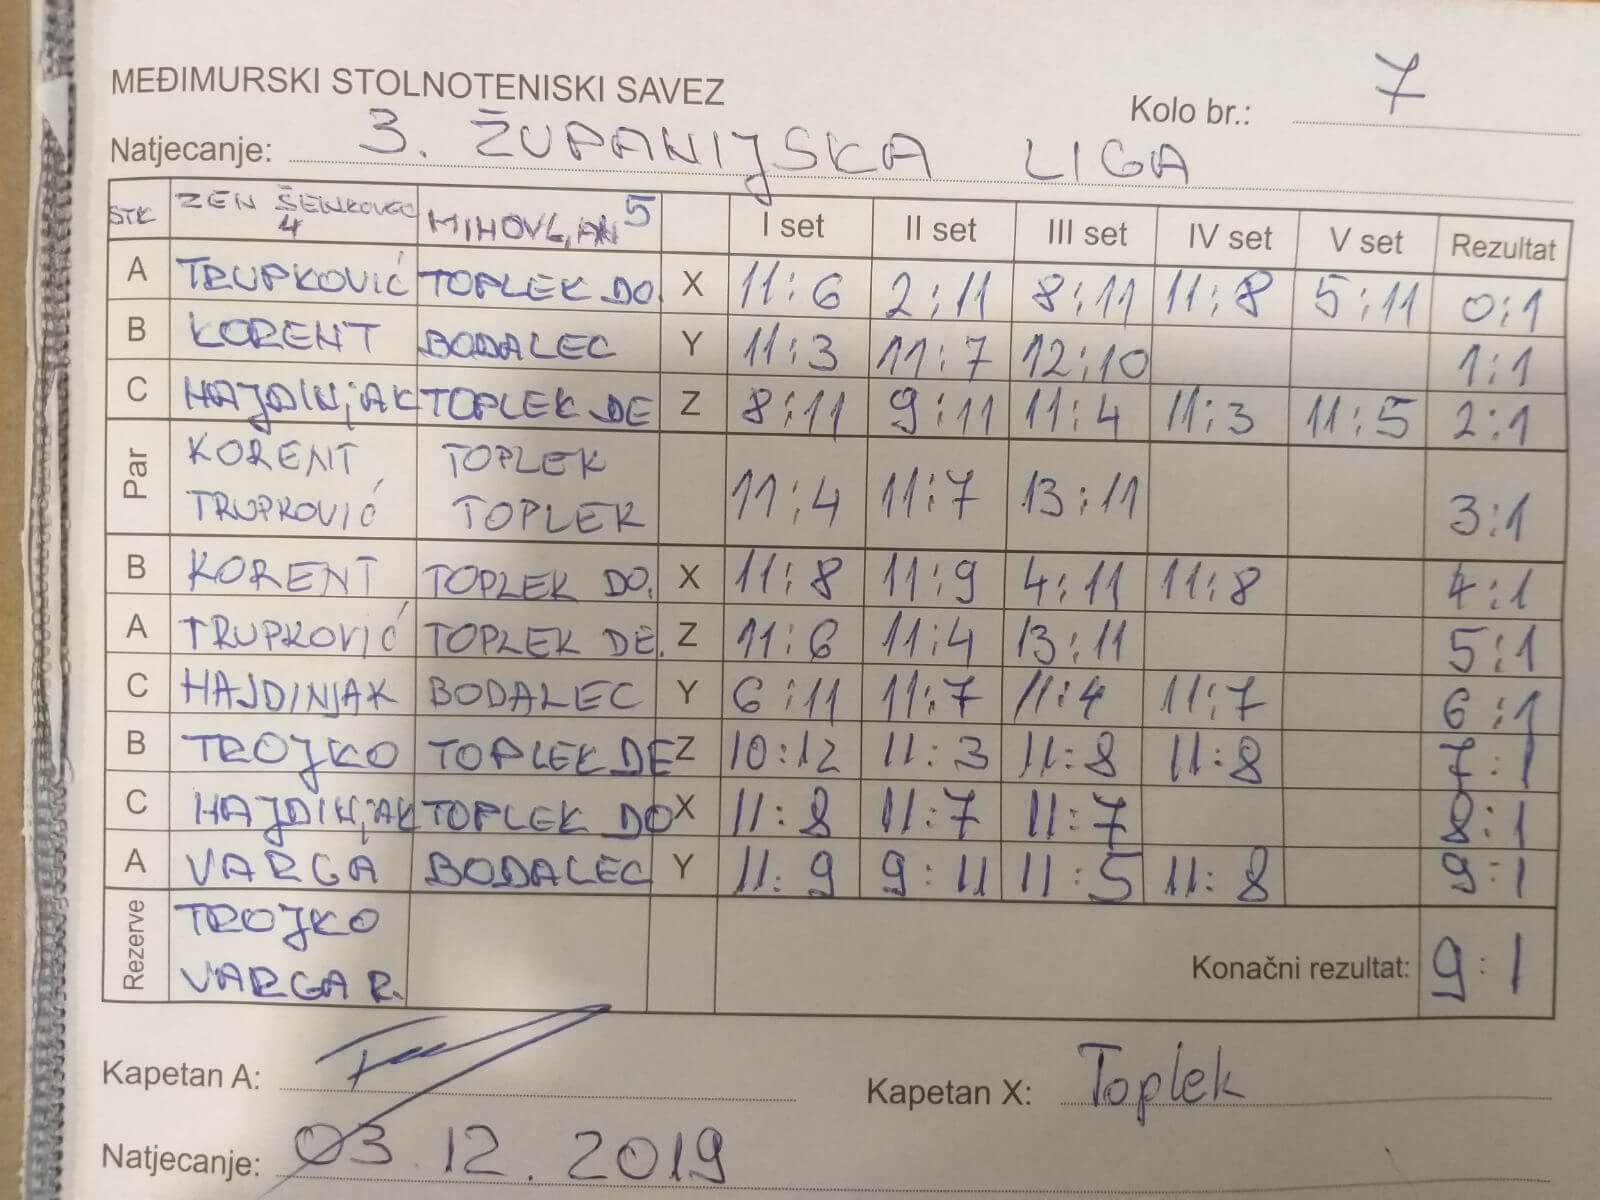 MEĐIMURSKI STOLNOTENISKI SAVEZ
Kolo br.: 7
Natjecanje: 3. ŽUPANIJSKA LIGA
STK ZEN ŠENKOVEC 4 MIHOVLJAN 5 I set II set III set IV set V set Rezultat
A TRUPKOVIĆ TOPLEK DO. X 11:6 2:11 8:11 11:8 5:11 0:1
B KORENT BODALEC Y 11:3 11:7 12:10 1:1
C HAJDINJAK TOPLEK DE Z 8:11 9:11 11:4 11:3 11:5 2:1
Par KORENT TOPLEK
TRUPKOVIĆ TOPLEK 11:4 11:7 13:11 3:1
B KORENT TOPLEK DO. X 11:8 11:9 4:11 11:8 4:1
A TRUPKOVIĆ TOPLEK DE. Z 11:6 11:4 13:11 5:1
C HAJDINJAK BODALEC Y 6:11 11:7 11:4 11:7 6:1
B TROJKO TOPLEK DE Z 10:12 11:3 11:8 11:8 7:1
C HAJDINJAK TOPLEK DO X 11:8 11:7 11:7 8:1
A VARGA BODALEC Y 11:9 9:11 11:5 11:8 9:1
Rezerve TROJKO
VARGA R.
Konačni rezultat: 9:1
Kapetan A:
Kapetan X: Toplek
Natjecanje: 03.12.2019